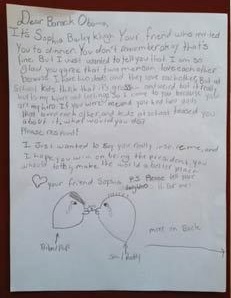 Dear Barack Obama,
It's Sophia Bailey Klugh. Your friend who invited
you to dinner. You don't remember okay that's
fine. But I just wanted to tell you that I am so
glad you agree that two men can love each other
because I have two dads and they love each other. But at
School kids think that it's gross and but it really
hurts my heart and feelings. So I come to you because you
are my hero. If you were me and you had two dads
that loved each other, and kids at school teased you
about it, what would you do?
Please respond!
I Just wanted to say you really inspire me, and
I hope you win on being the president. You
would totally make the world a better place.
your friend Sophia
P.S. Please tell your
hi for me!
more on Back